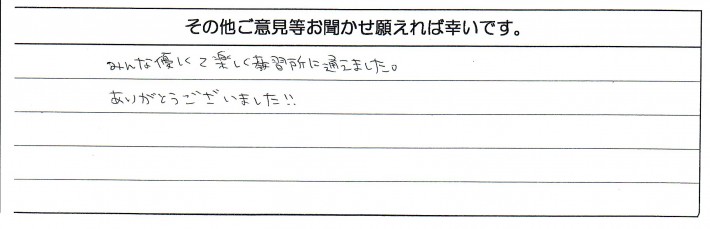 その他ご意見等お聞かせ願えれば幸いです。
みんな優しくて楽しく教習所に通えました。
ありがとうございました!!